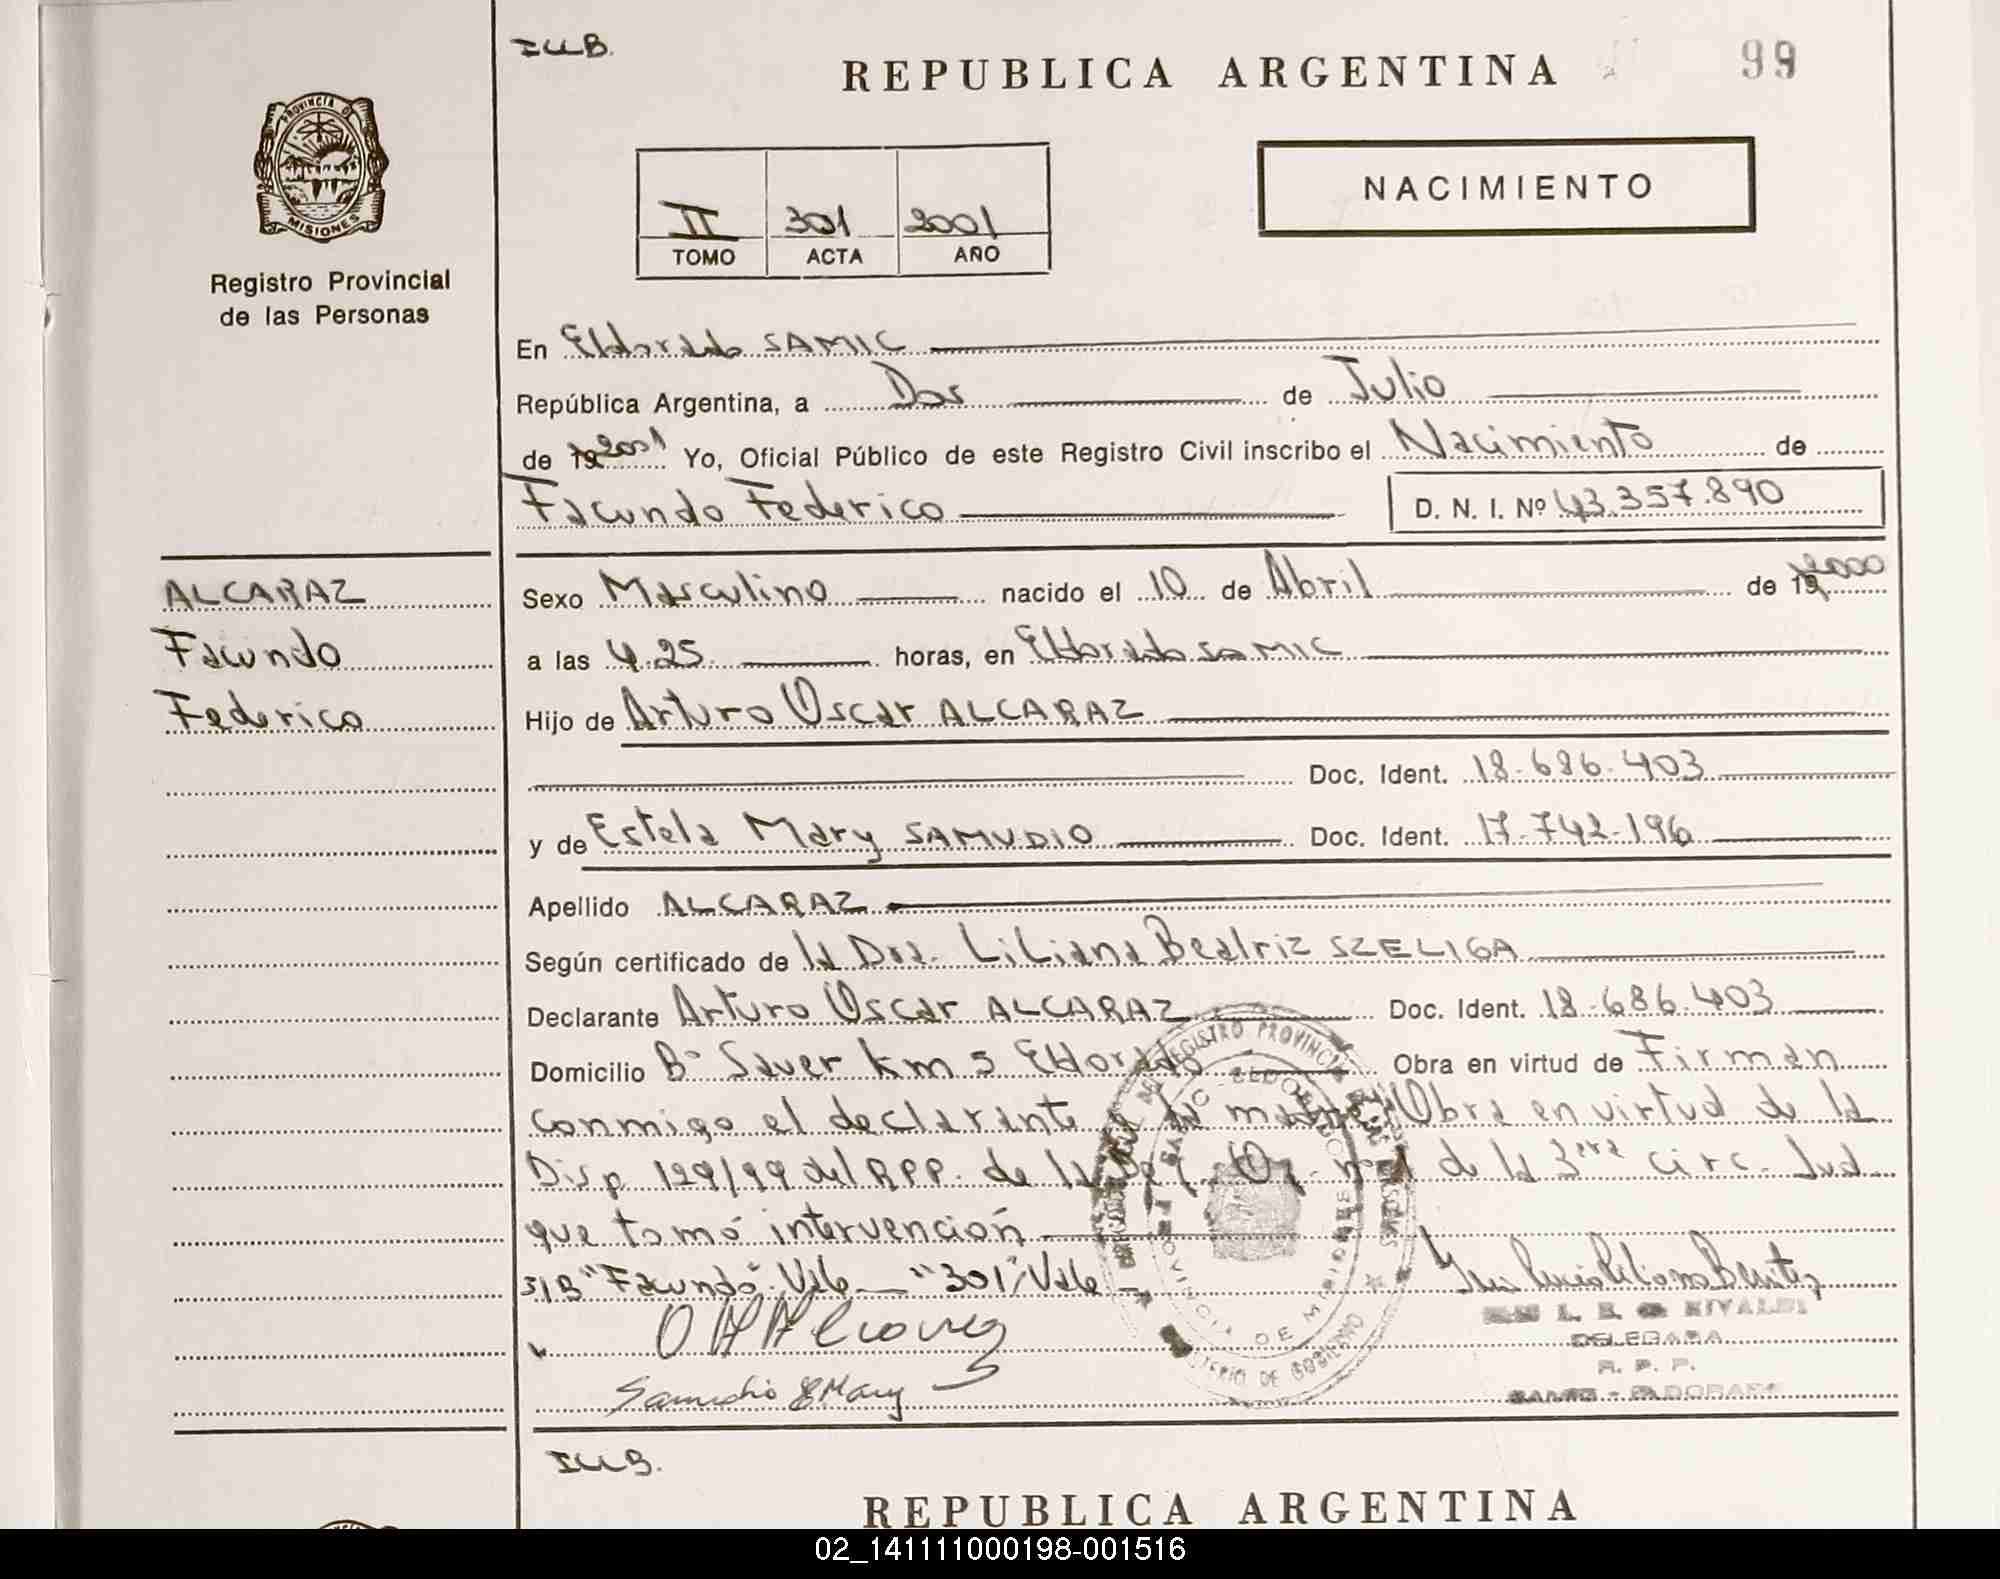 ILLB.
REPUBLICA ARGENTINA
99
PROVINCIA D
MISIONES
Registro Provincial
de las Personas
NACIMIENTO
II 301 2001
TOMO ACTA AÑO
En Eldorado SAMIC
República Argentina, a Dos de Julio
de 19 2001 Yo, Oficial Público de este Registro Civil inscribo el Nacimiento de
Facundo Federico D. N. I. Nº 43.357.890
ALCARAZ
Facundo
Federico
Sexo Masculino nacido el 10 de Abril de 19 2000
a las 4.25 horas, en Eldorado SAMIC
Hijo de Arturo Oscar ALCARAZ
Doc. Ident. 18.686.403
y de Estela Mary SAMUDIO Doc. Ident. 17.742.196
Apellido ALCARAZ
Según certificado de la Dra. Liliana Beatriz SZELIGA
Declarante Arturo Oscar ALCARAZ Doc. Ident. 18.686.403
Domicilio Bº Sauer km 5 Eldorado Obra en virtud de Firman
conmigo el declarante y la madre. Obra en virtud de la
Disp 129/99 del RPP. de la Def. Of. de la 3era Circ. Jud
que tomó intervención
S/B "Facundo" Vale "301" Vale
REGISTRO PROVINCIAL DE LAS PERSONAS
PROVINCIA DE MISIONES
MINISTERIO DE GOBIERNO
Samudio E Mary
RIVALDI
DELEGADA
R. P. P.
SAMIC - ELDORADO
ILLB.
REPUBLICA ARGENTINA
02_141111000198-001516